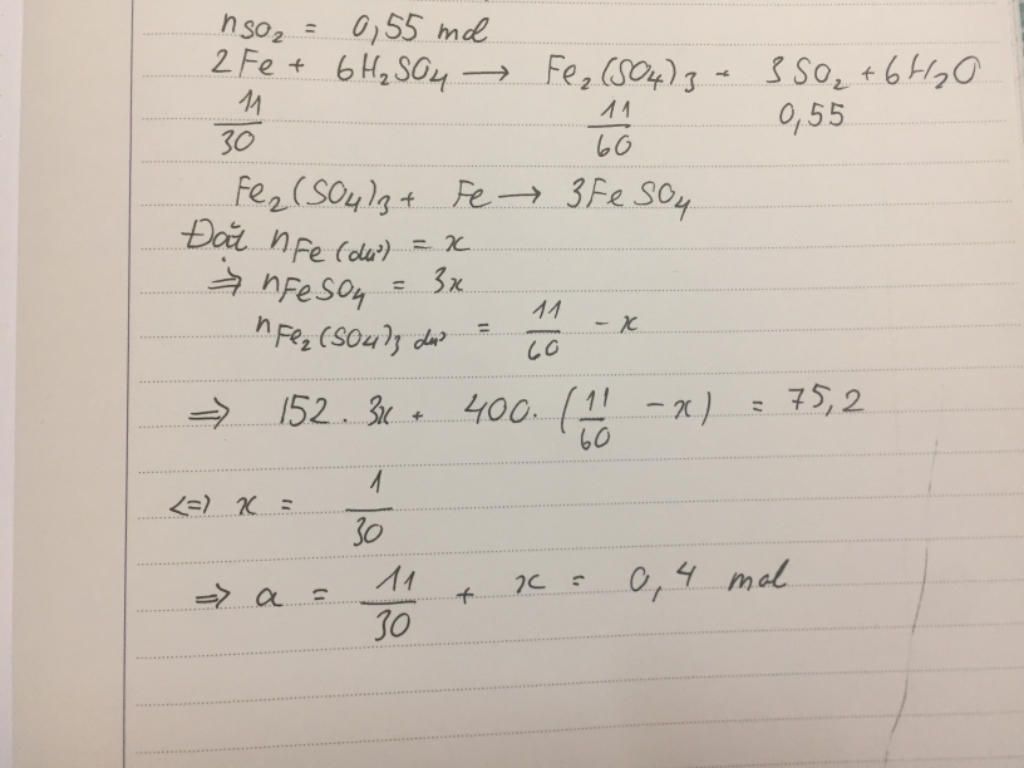 nSO₂ = 0,55 mol
2Fe + 6H₂SO₄ → Fe₂(SO₄)₃ + 3SO₂ + 6H₂O
11/30 11/60 0,55
Fe₂(SO₄)₃ + Fe → 3FeSO₄
Đặt nFe (dư) = x
⇒ nFeSO₄ = 3x
nFe₂(SO₄)₃ dư = 11/60 - x
⇒ 152 . 3x + 400. (11/60 - x) = 75,2
<=> x = 1/30
⇒ a = 11/30 + x = 0,4 mol